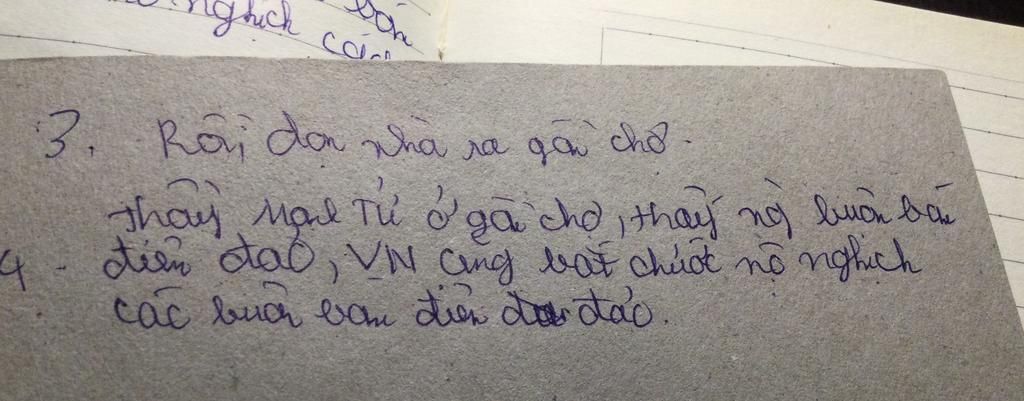 nghịch bán
các
3. Rồi dọn nhà ra gần chợ.
thầy Mạnh Tử ở gần chợ, thấy nô buôn bán
4 - điên đảo, VN cũng bắt chước nô nghịch
các buôn bán điên đảo.